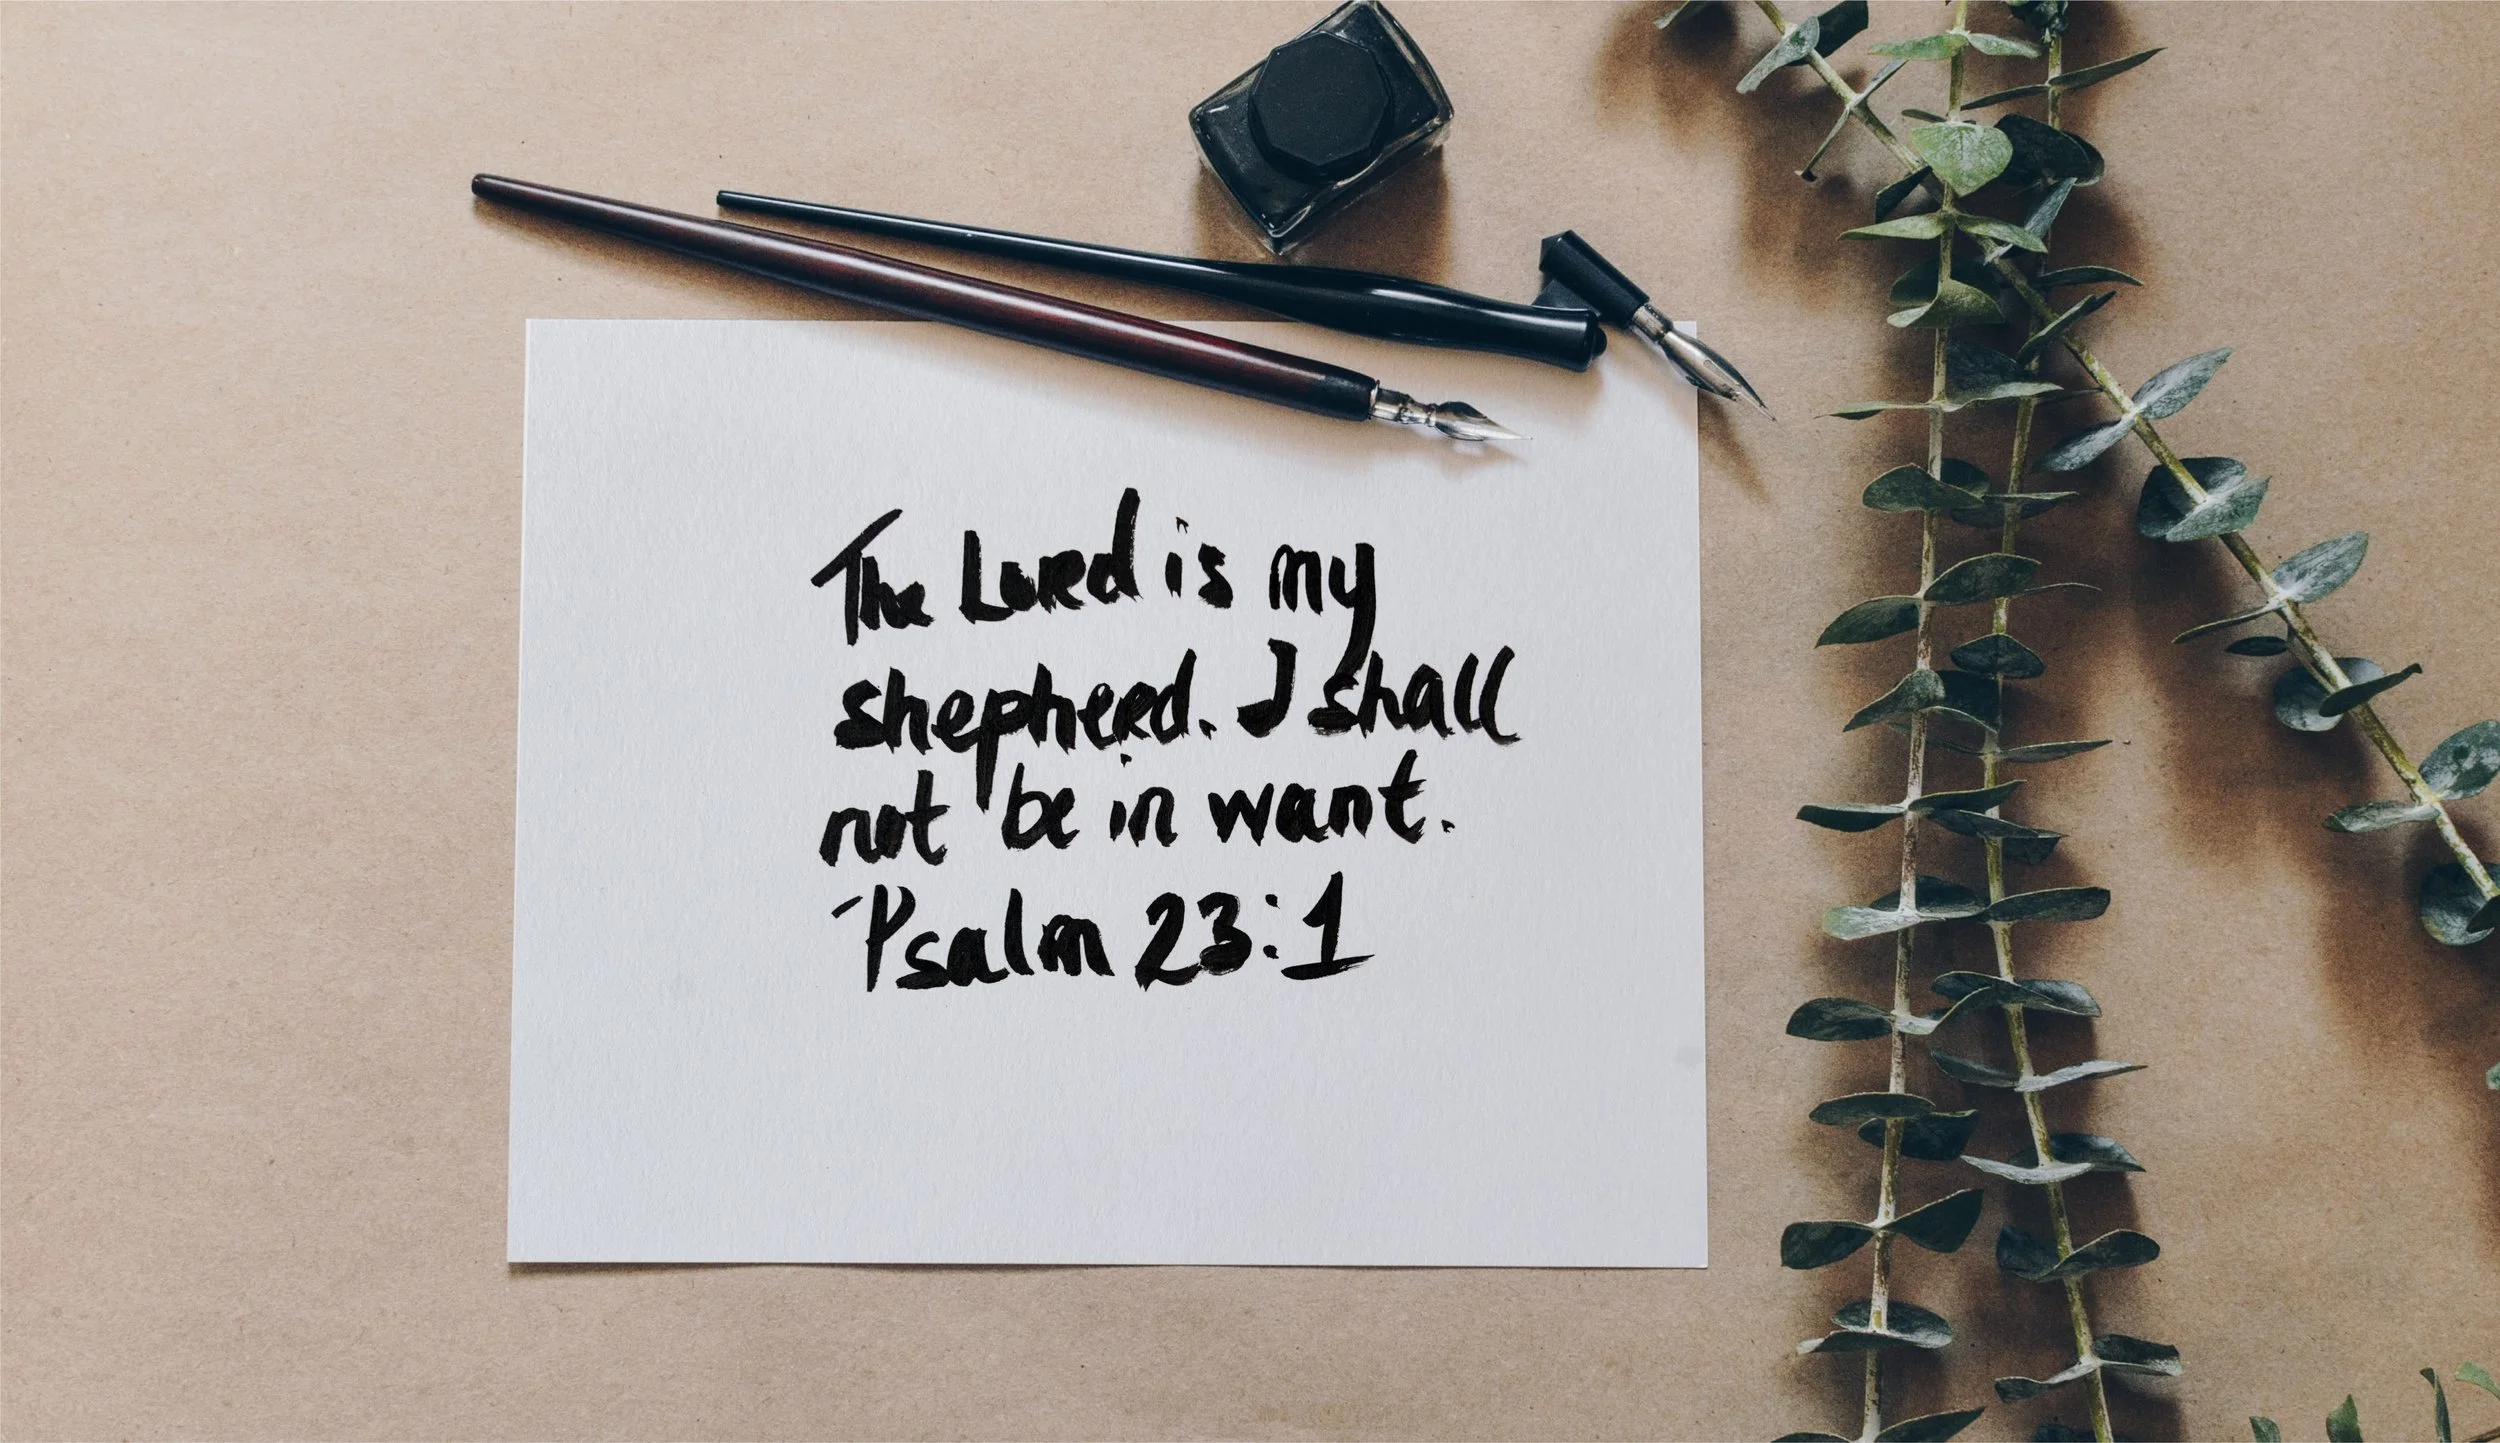 The Lord is my
shepherd. I shall
not be in want.
Psalm 23:1